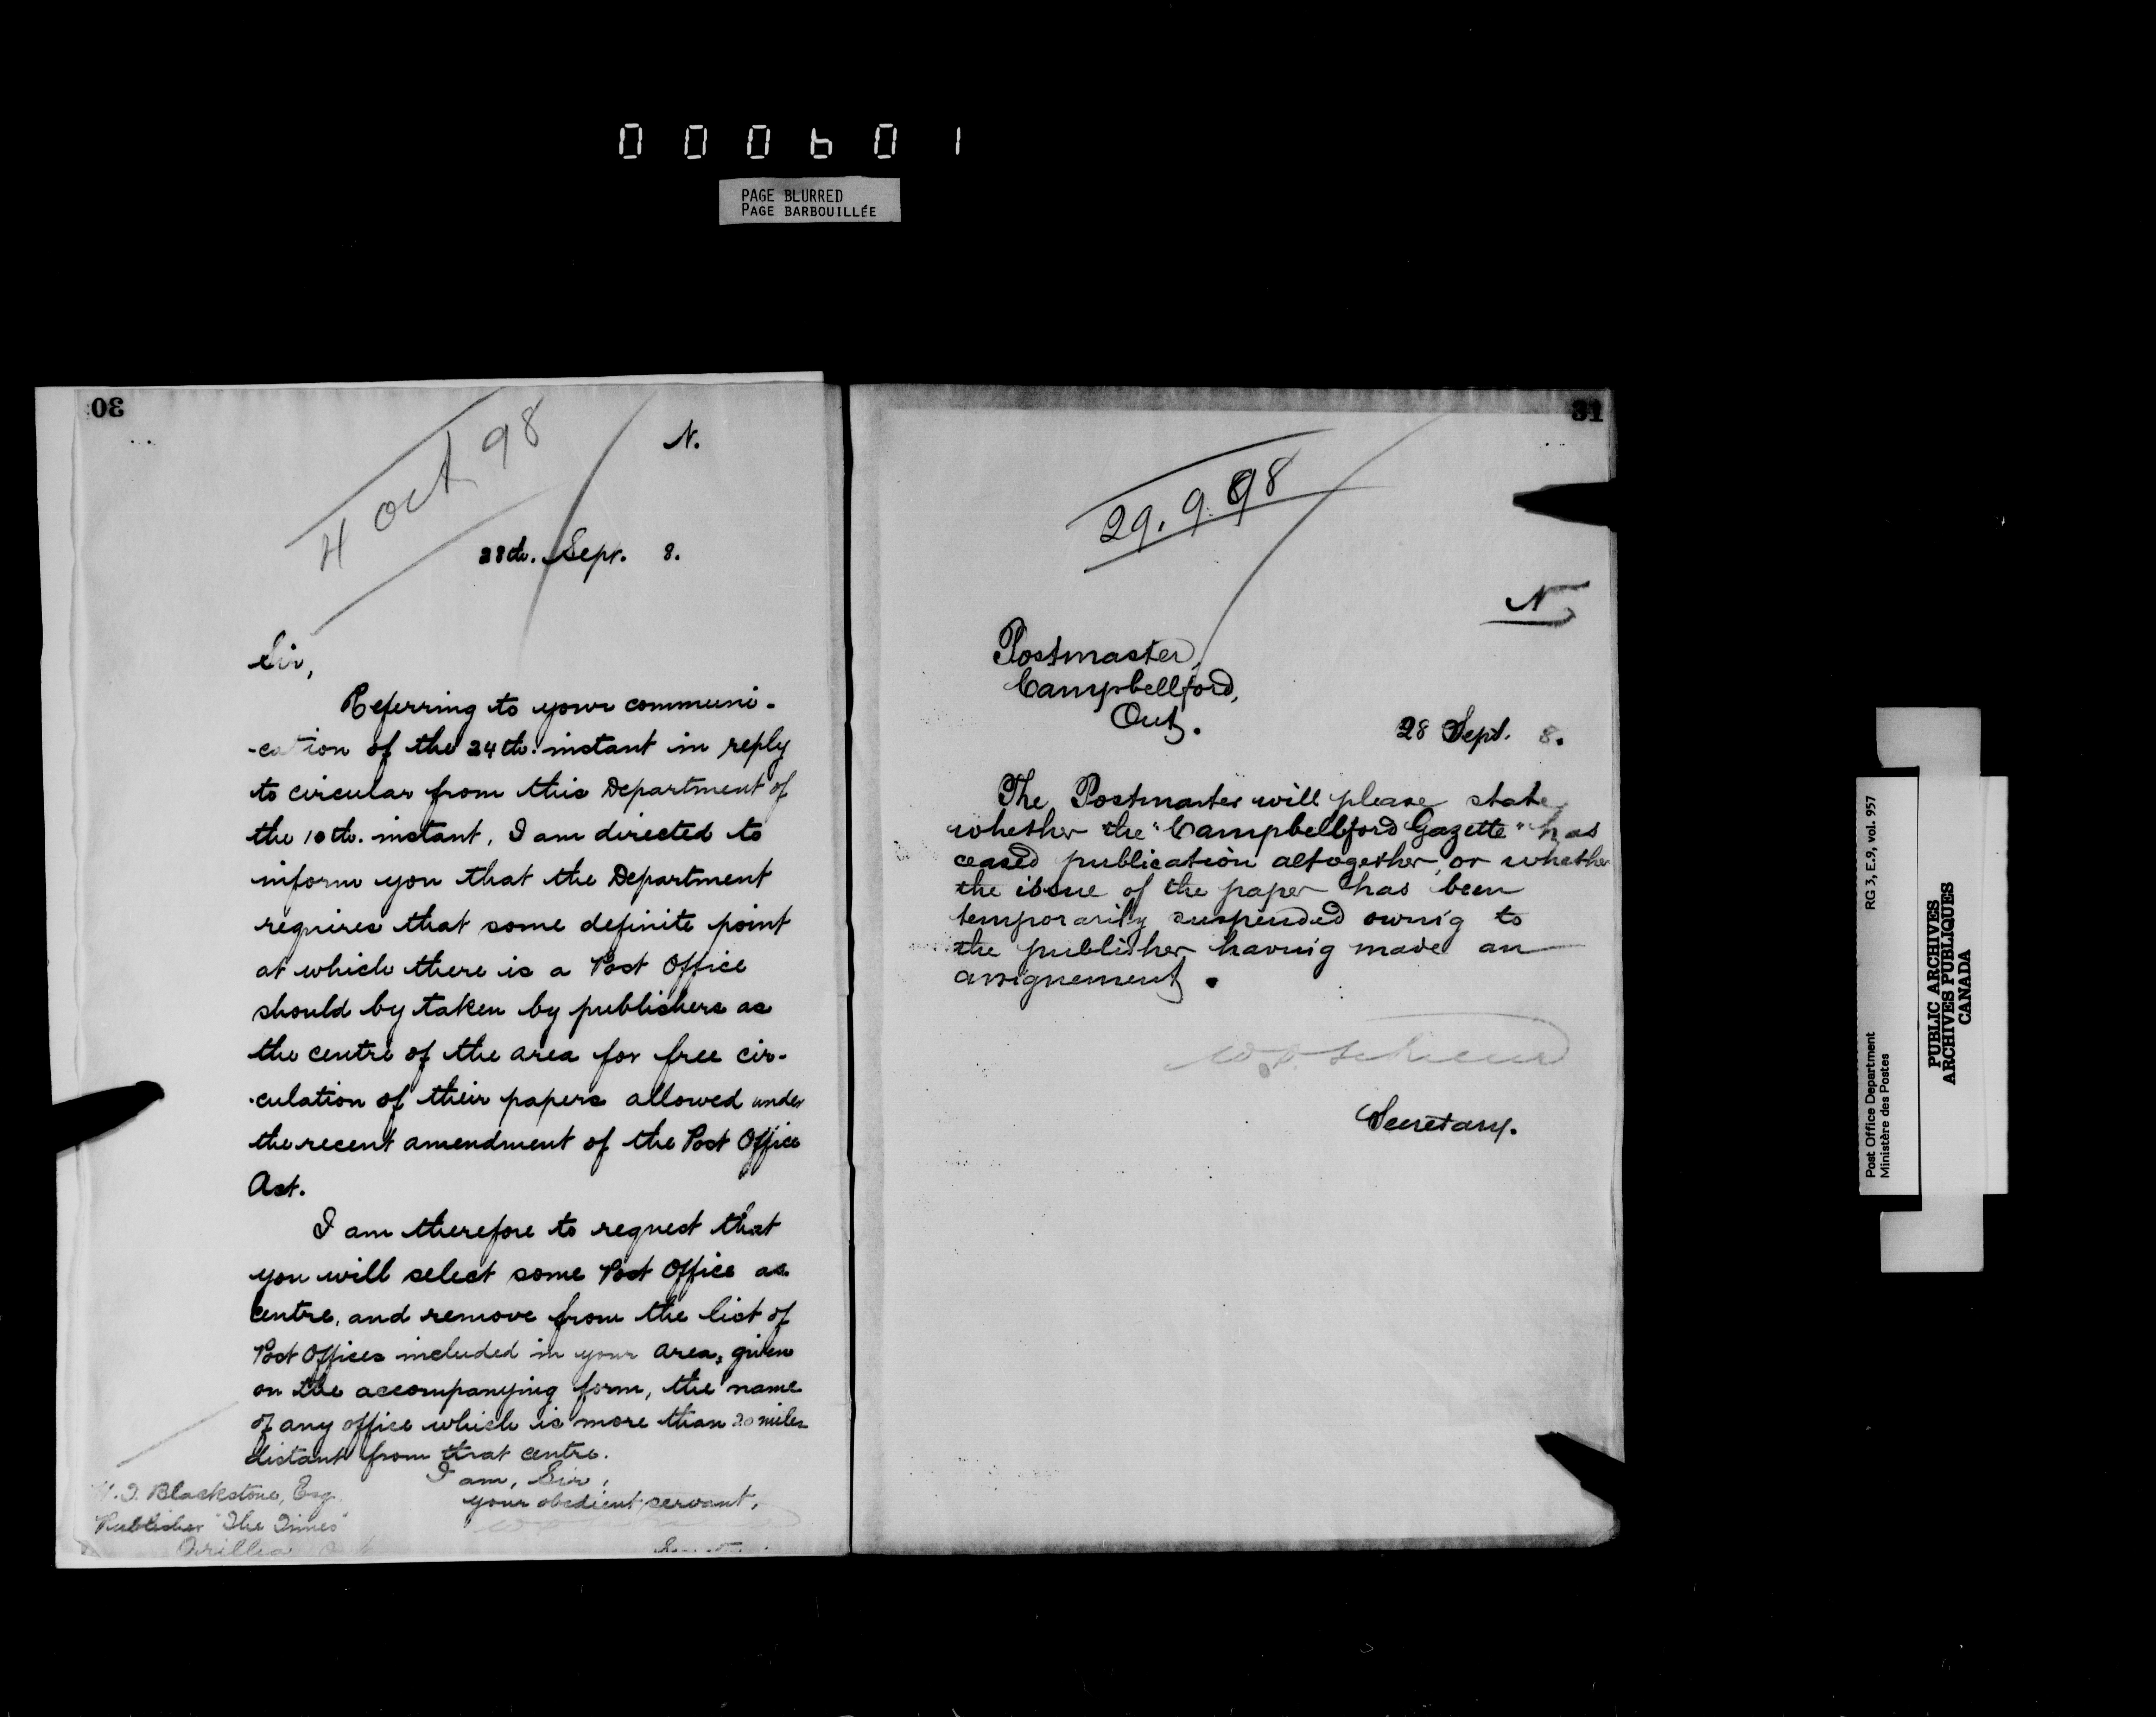 000601
PAGE BLURRED
PAGE BARBOUILLÉE
30
4 Oct 98
N.
28th. Sept. 8.
Sir,
Referring to your communi-
-cation of the 24th. instant in reply
to circular from this Department of
the 10th. instant, I am directed to
inform you that the Department
requires that some definite point
at which there is a Post Office
should by taken by publishers as
the centre of the area for free cir-
-culation of their papers allowed under
the recent amendment of the Post Office
Act.
I am therefore to request that
you will select some Post Office as
centre, and remove from the list of
Post Offices included in your area, given
on the accompanying form, the name
of any office which is more than 20 miles
distant from that centre.
I am, Sir,
your obedient servant,
Blackstone, Esq.
Publisher "The Times"
Orillia
31
29.9.98
N
Postmaster,
Campbellford,
Ont.
28 Sept. 8.
The Postmaster will please state
whether the "Campbellford Gazette" has
ceased publication altogether, or whether
the issue of the paper has been
temporarily suspended owing to
the publisher having made an
assignement.
Secretary.
Post Office Department
Ministère des Postes
RG 3, E.9, vol. 957
PUBLIC ARCHIVES
ARCHIVES PUBLIQUES
CANADA